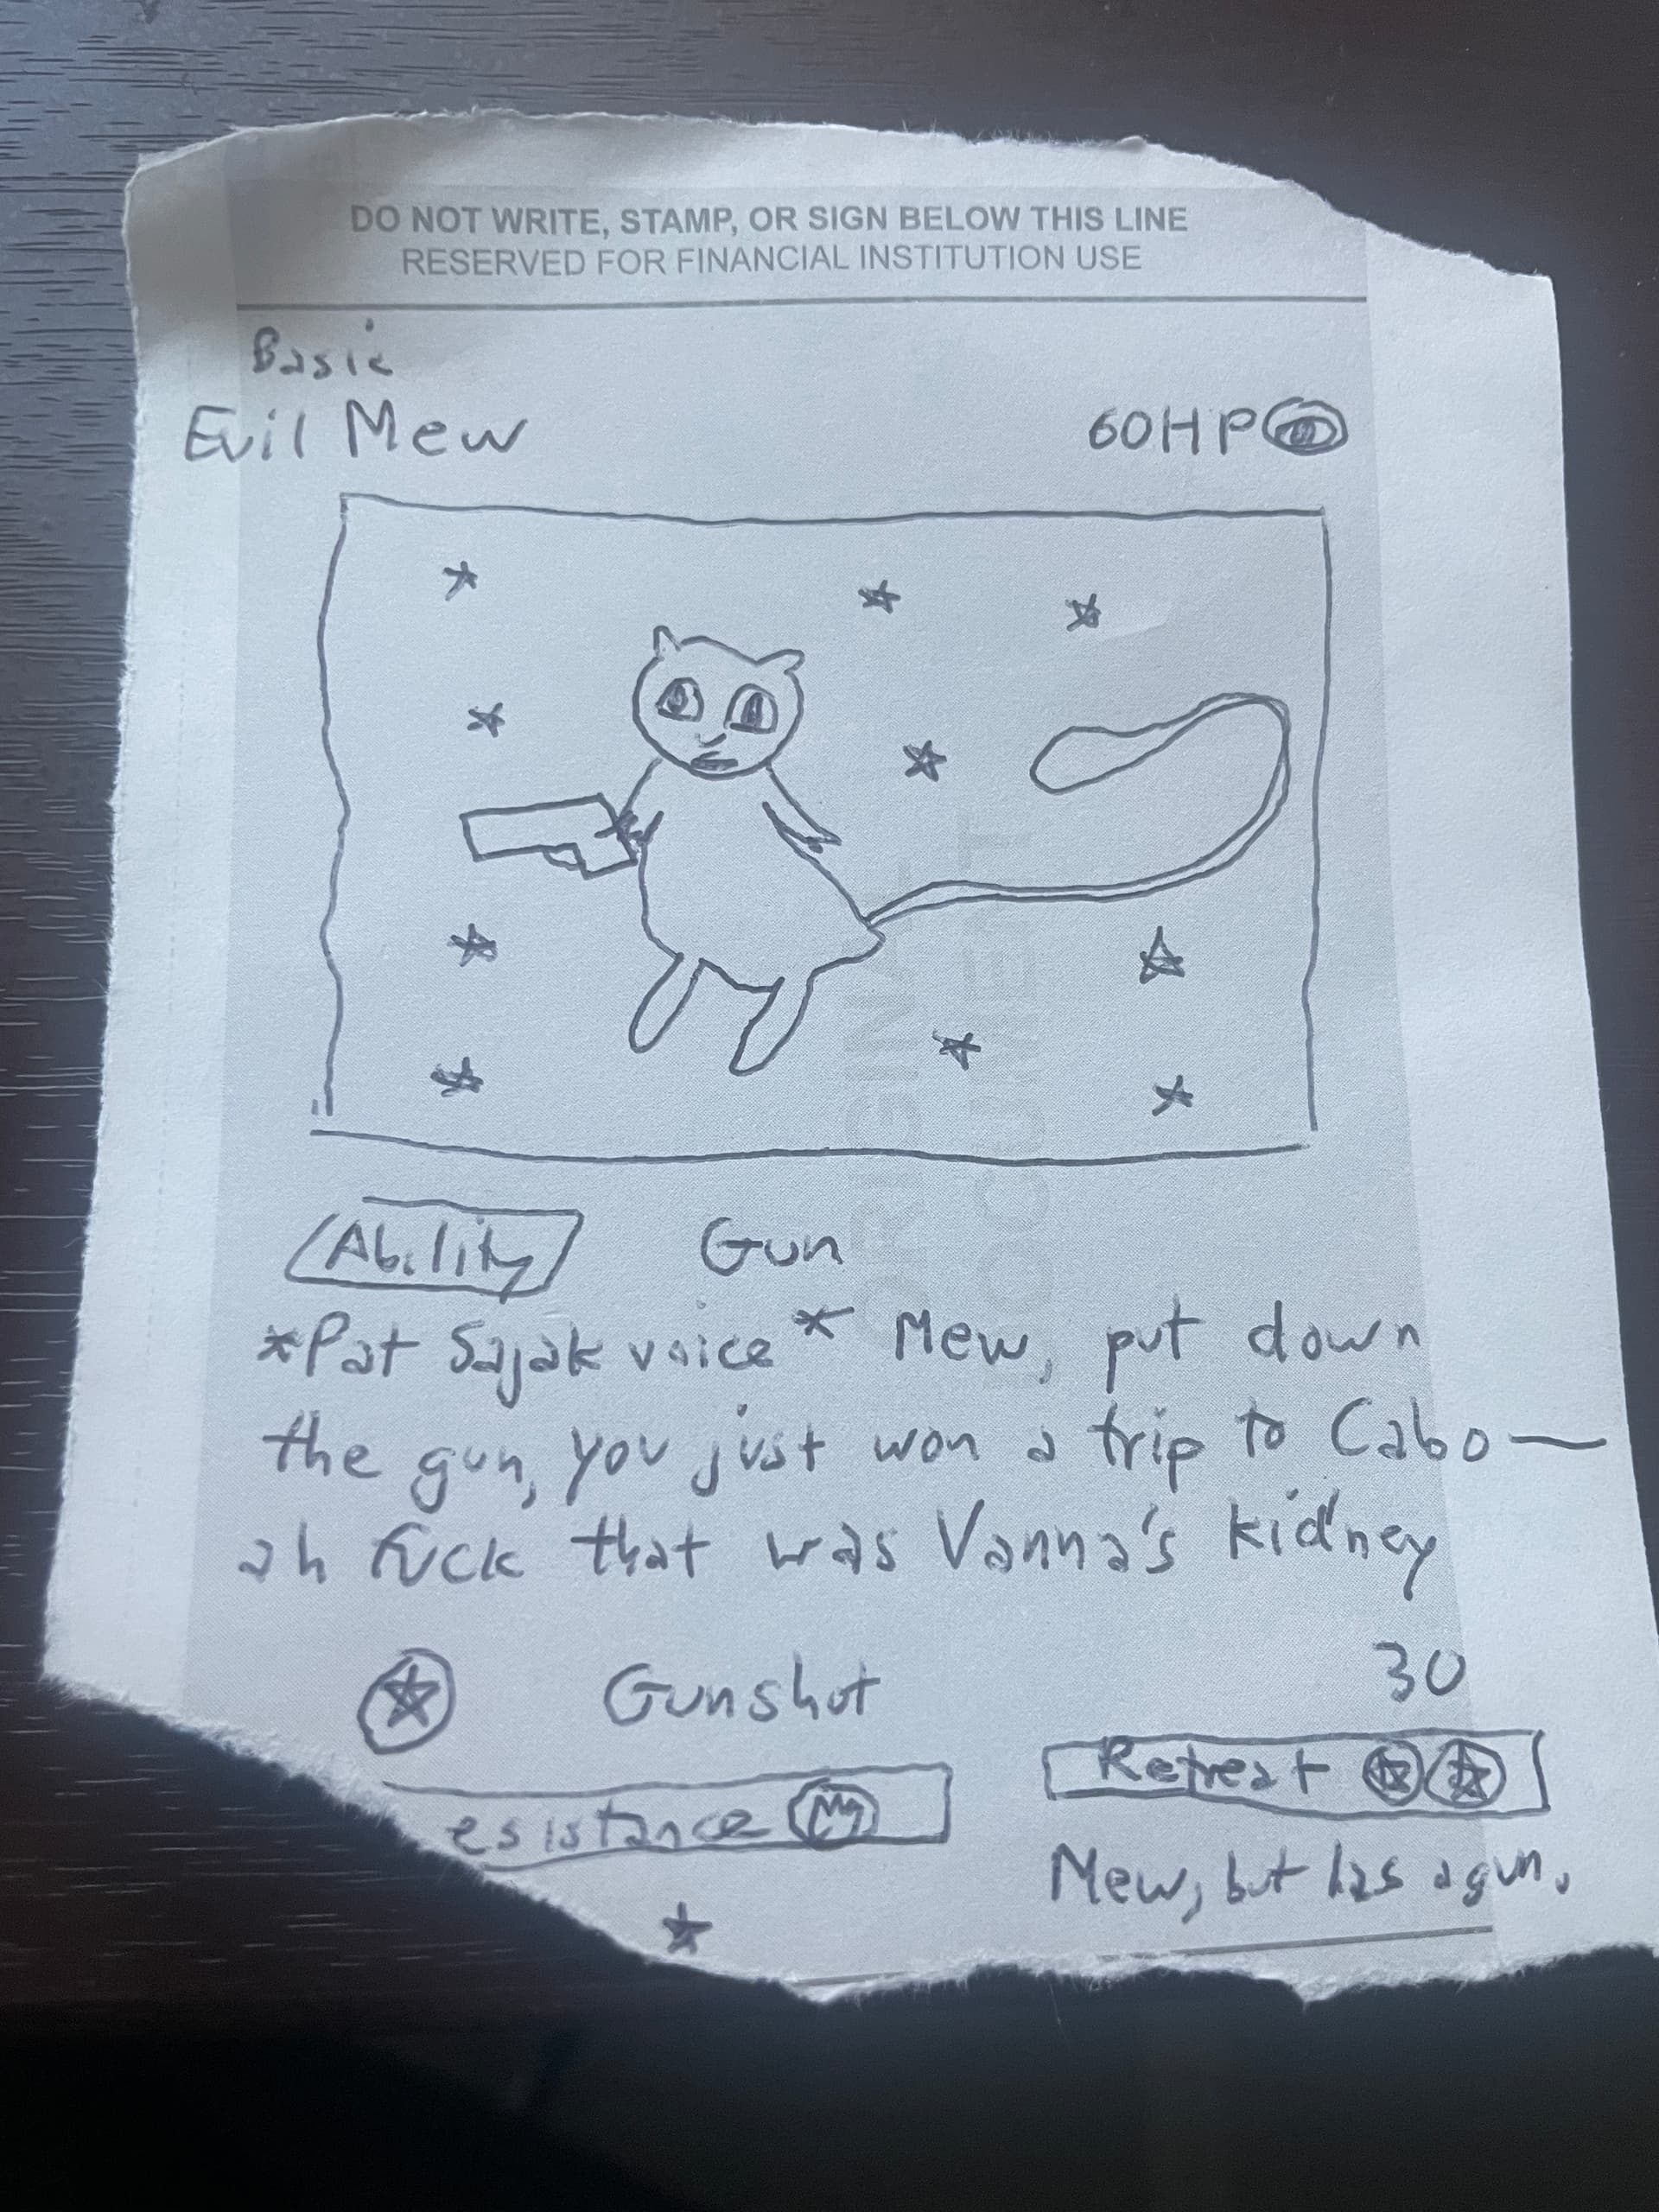 DO NOT WRITE, STAMP, OR SIGN BELOW THIS LINE
RESERVED FOR FINANCIAL INSTITUTION USE
Basic
Evil Mew 60HP
Ability Gun
*Pat Sajak voice* Mew, put down
the gun, you just won a trip to Cabo—
ah fuck that was Vanna's kidney
Gunshot 30
Retreat
esistance
Mew, but has a gun.
ORIGINAL
DOCUMENT